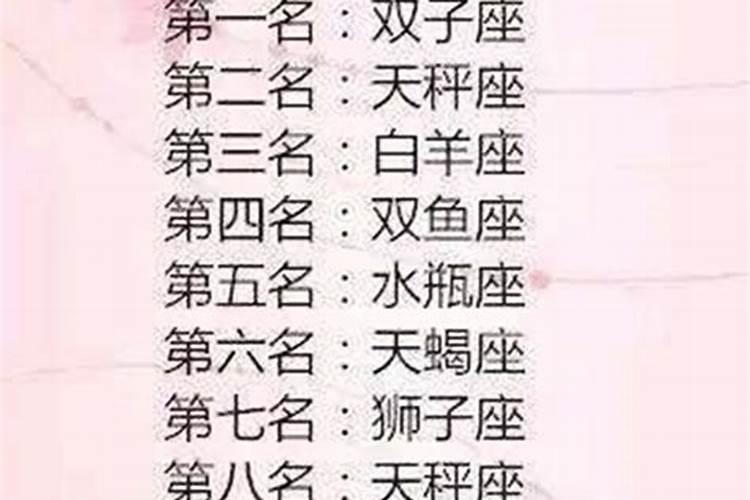 第一名：双子座
第二名：天秤座
第三名：白羊座
第四名：双鱼座
第五名：水瓶座
第六名：天蝎座
第七名：狮子座
第八名：天秤座